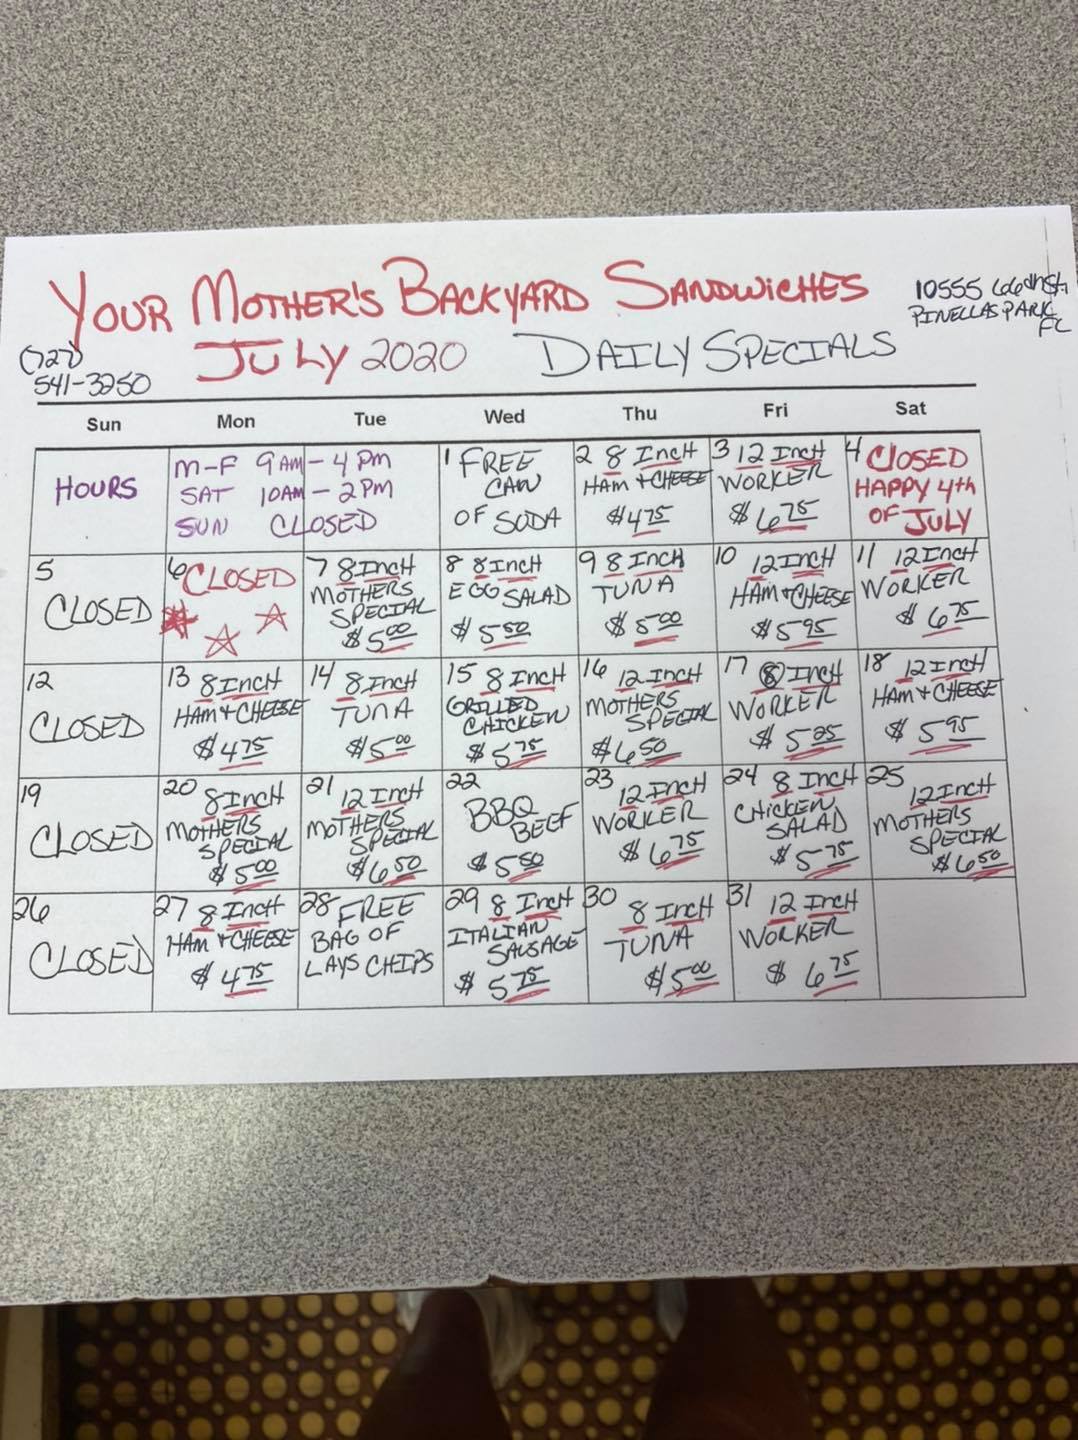 YOUR MOTHER'S BACKYARD SANDWICHES
10555 66th St.
PINELLAS PARK
FL
(727)
541-3250
JULY 2020 DAILY SPECIALS
Sun Mon Tue Wed Thu Fri Sat
HOURS
M-F 9AM - 4PM
SAT 10AM - 2PM
SUN CLOSED
1 FREE
CAN
OF SODA
2 8 INCH
HAM + CHEESE
$4.75
3 12 INCH
WORKER
$6.75
4 CLOSED
HAPPY 4th
OF JULY
5
CLOSED
6 CLOSED
7 8 INCH
MOTHERS
SPECIAL
$5.00
8 8 INCH
EGG SALAD
$5.50
9 8 INCH
TUNA
$5.00
10 12 INCH
HAM + CHEESE
$5.95
11 12 INCH
WORKER
$6.75
12
CLOSED
13 8 INCH
HAM + CHEESE
$4.75
14 8 INCH
TUNA
$5.00
15 8 INCH
GRILLED
CHICKEN
$5.75
16 12 INCH
MOTHERS
SPECIAL
$6.50
17 8 INCH
WORKER
$5.25
18 12 INCH
HAM + CHEESE
$5.95
19
CLOSED
20 8 INCH
MOTHERS
SPECIAL
$5.00
21 12 INCH
MOTHERS
SPECIAL
$6.50
22
BBQ
BEEF
$5.50
23 12 INCH
WORKER
$6.75
24 8 INCH
CHICKEN
SALAD
$5.75
25
12 INCH
MOTHERS
SPECIAL
$6.50
26
CLOSED
27 8 INCH
HAM + CHEESE
$4.75
28 FREE
BAG OF
LAYS CHIPS
29 8 INCH
ITALIAN
SAUSAGE
$5.75
30 8 INCH
TUNA
$5.00
31 12 INCH
WORKER
$6.75